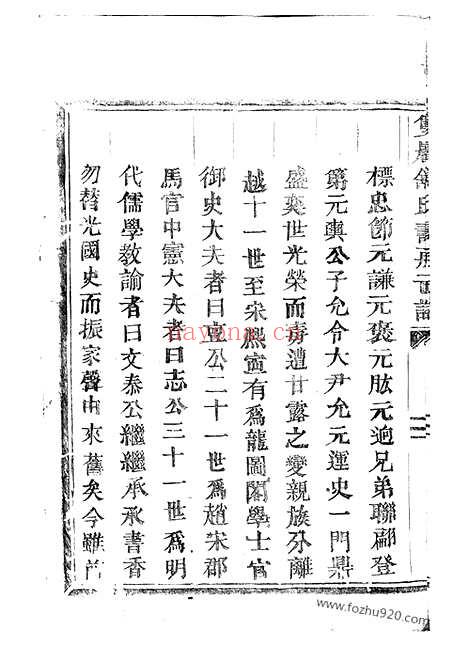 標忠節元謙元褒元肱元逈兄弟聯翩登
第元輿公子允令大尹允元運史一門鼎
盛奕世光榮而毒遭甘露之變親族分離
越十一世至宋熙寧有爲龍圖閣學士官
御史大夫者曰亶公二十一世爲趙宋郡
馬官中憲大夫者曰志公三十一世爲明
代儒學教諭者曰文泰公繼繼承承書香
勿替光國史而振家聲由來舊矣今雖
nayona.cn
www.fozhu920.com